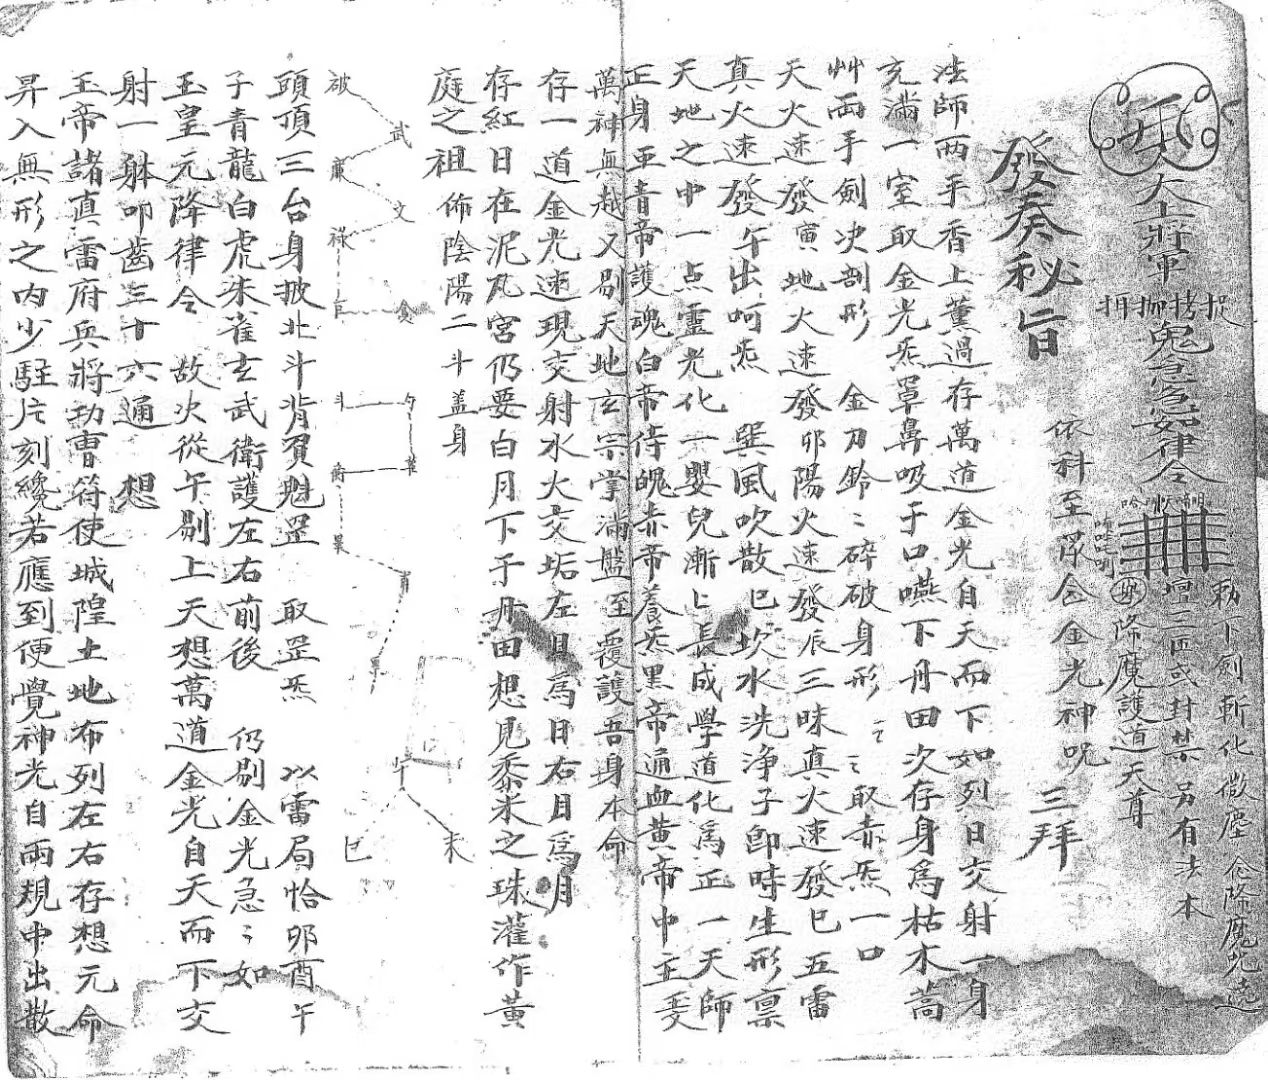 勅下劍斬化微塵 念降魔咒遶
壇三匝或封禁另有法本
降魔護道天尊
大上將軍
捉拷枷押
鬼急急如律令
依科至 念金光神呪 三拜
發奏秘旨
法師兩手香上薰過存萬道金光自天而下如列日交射一身
充滿一室取金光炁罩鼻吸于口嚥下丹田次存身爲枯木蒿
艸兩手劍决剖形 金刀鈴〻碎破身形〻〻取赤炁一口
天火速發寅地火速發卯陽火速發辰三昧真火速發巳五雷
真火速發午出呵炁 巽風吹散巳坎水洗淨子卽時生形禀
天地之中一点靈光化一嬰兒漸〻長成學道化爲正一天師
正身至青帝護魂白帝侍魄赤帝養炁黑帝通血黃帝中主
萬神無越又剔天地玄宗掌滿盤至覆護吾身本命
存一道金光速現交射水火交垢左目爲日右目爲月
存紅日在泥瓦宮仍要白月下于丹田想見黍米之珠灌作黃
庭之祖佈陰陽二斗盖身
破 武
廉 文
祿
巨 貪
斗
午
未
巳
頭頂三台身披北斗背負魁罡 取罡炁 以雷局恰卯酉午
子青龍白虎朱雀玄武衛護左右前後 仍剔金光急〻如
玉皇元降律令 故次從午剔上天想萬道金光自天而下交
射一躰叩齒三十六通 想
玉帝諸真雷府兵將功曹符使城隍土地布列左右存想元命
昇入無形之内少駐片刻纔若應到便覺神光自兩規中出散